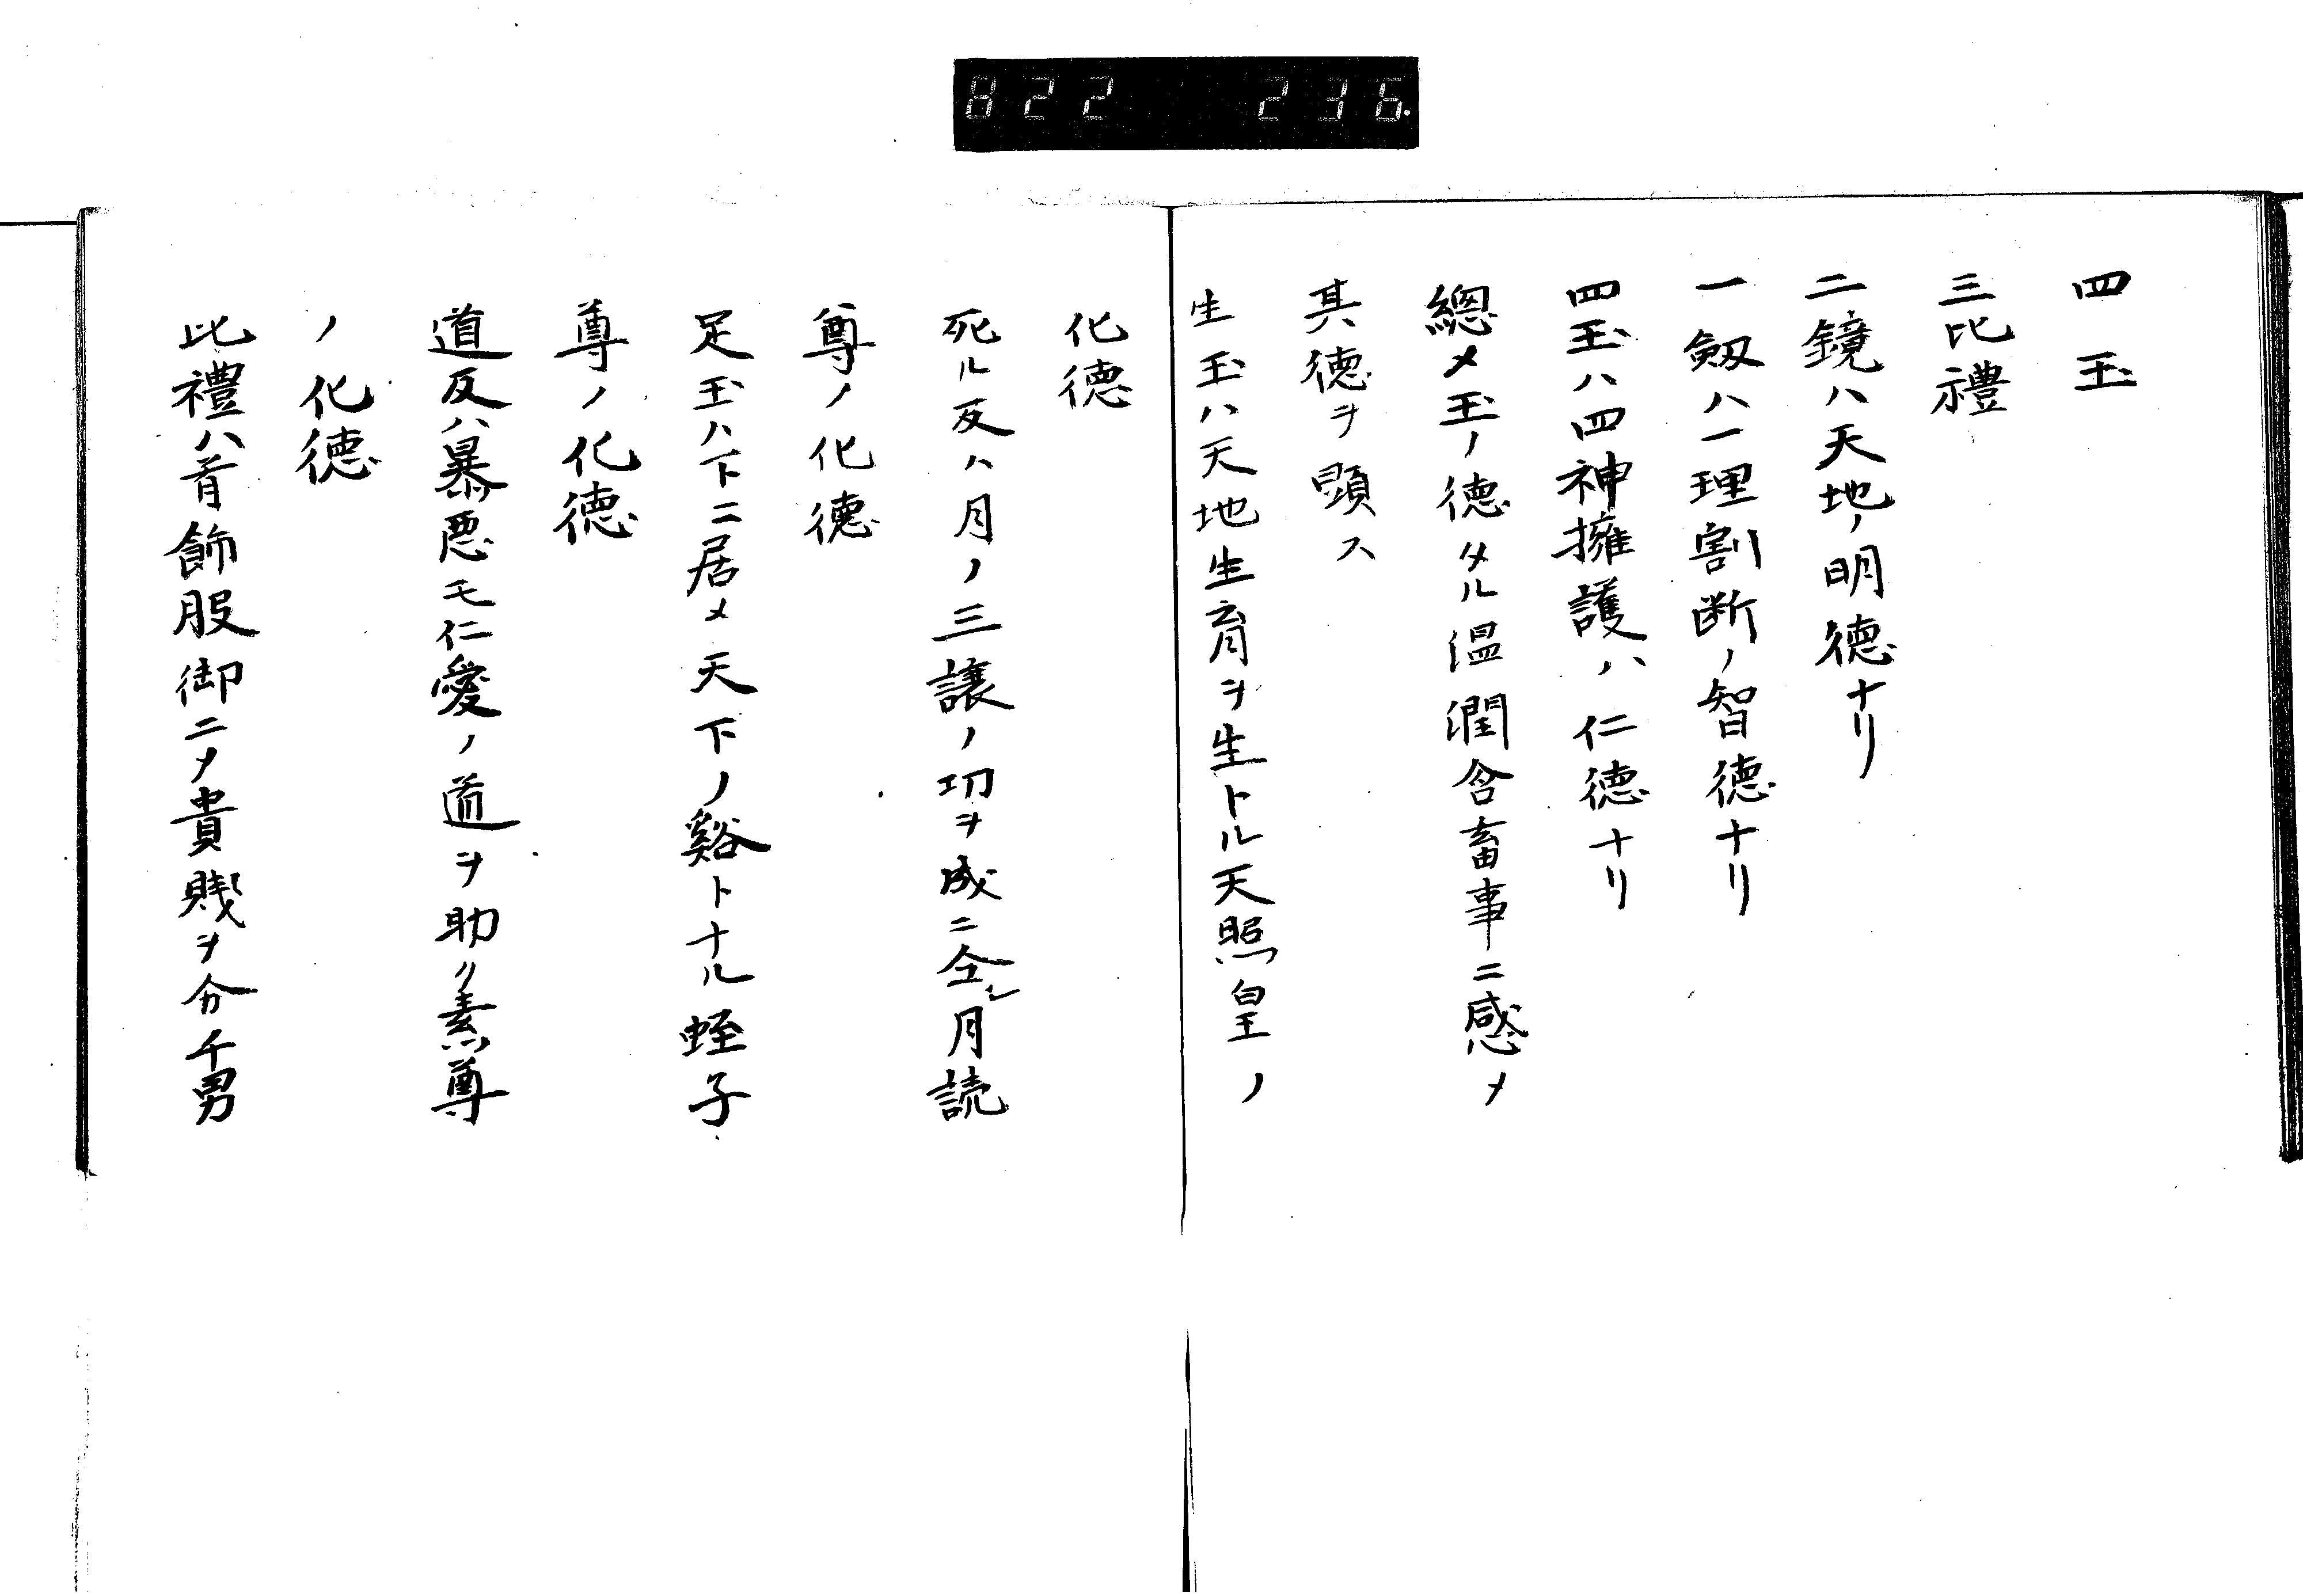 822 236.
四玉
三比禮
二鏡ハ天地ノ明德ナリ
一劔ハ一理割断ノ智德ナリ
四玉ハ四神擁護ハ仁徳ナリ
總メ玉ノ徳タル温潤含畜事ニ感メ
其徳ヲ顕ス
生玉ハ天地生育ヲ生トル天照皇ノ
化徳
死ル反ハ月ノ三譲ノ功ヲ成ニ全レ月読
尊ノ化德
足玉ハ下ニ居メ天下ノ谿トナル蛭子
尊ノ化徳
道反ハ暴悪モ仁愛ノ道ヲ助ク素尊
ノ化徳
比禮ハ首飾服御ニメ貴賎ヲ分チ男